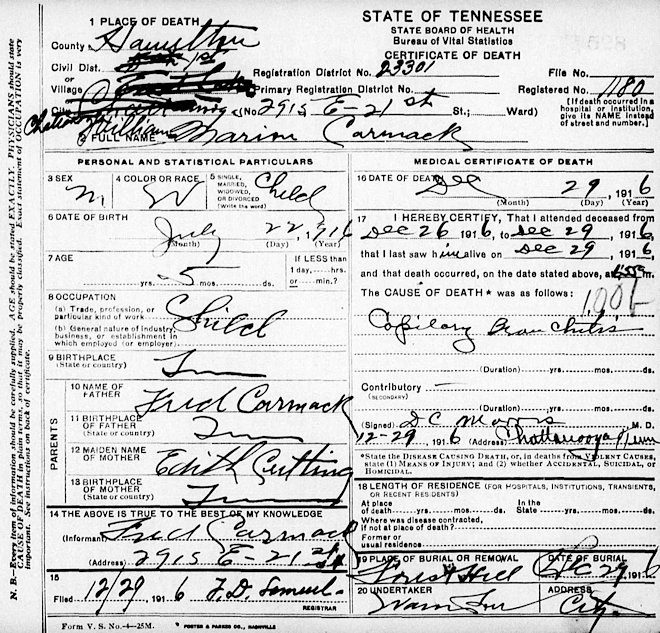 STATE OF TENNESSEE
STATE BOARD OF HEALTH
Bureau of Vital Statistics
CERTIFICATE OF DEATH
1 PLACE OF DEATH
County Hamilton
Civil Dist. 1st
or
Village
City Chattanooga (No. 2915 E-21st St.; Ward)
Registration District No. 23301 File No.
Primary Registration District No. Registered No. 1180
[If death occurred in a hospital or institution, give its NAME instead of street and number.]
2 FULL NAME William Marion Carmack
PERSONAL AND STATISTICAL PARTICULARS
3 SEX M
4 COLOR OR RACE W
5 SINGLE, MARRIED, WIDOWED, OR DIVORCED (Write the word) Child
6 DATE OF BIRTH July 22, 1916
(Month) (Day) (Year)
7 AGE
yrs. 5 mos. ds.
If LESS than
1 day,....hrs.
or....min.?
8 OCCUPATION
(a) Trade, profession, or particular kind of work
Child
(b) General nature of industry, business, or establishment in which employed (or employer)
9 BIRTHPLACE
(State or country)
PARENTS
10 NAME OF FATHER Fred Carmack
11 BIRTHPLACE OF FATHER
(State or country)
12 MAIDEN NAME OF MOTHER Edith Cutting
13 BIRTHPLACE OF MOTHER
(State or country)
14 THE ABOVE IS TRUE TO THE BEST OF MY KNOWLEDGE
(Informant) Fred Carmack
(Address) 2915 E-21 St
15
Filed 12/29 1916 F.D. Samuel
REGISTRAR
MEDICAL CERTIFICATE OF DEATH
16 DATE OF DEATH Dec 29, 1916
(Month) (Day) (Year)
17 I HEREBY CERTIFY, That I attended deceased from
Dec 26 1916, to Dec 29, 1916,
that I last saw him alive on Dec 29, 1916,
and that death occurred, on the date stated above, at
The CAUSE OF DEATH* was as follows:
Capilary Bronchitis
(Duration) yrs. mos. ds.
Contributory
(SECONDARY)
(Duration) yrs. mos. ds.
(Signed) D C M. D.
12-29, 1916 (Address) Chattanooga Tenn
*State the DISEASE CAUSING DEATH, or, in deaths from VIOLENT CAUSES, state (1) MEANS OF INJURY; and (2) whether ACCIDENTAL, SUICIDAL, or HOMICIDAL.
18 LENGTH OF RESIDENCE (FOR HOSPITALS, INSTITUTIONS, TRANSIENTS, OR RECENT RESIDENTS)
At place of death yrs. mos. ds. In the State yrs. mos. ds.
Where was disease contracted, if not at place of death?
Former or usual residence
19 PLACE OF BURIAL OR REMOVAL Forest Hill
DATE OF BURIAL Dec 29, 1916
20 UNDERTAKER
ADDRESS City
Form V. S. No.-4-25M. FOSTER & PARKES CO., NASHVILLE
N. B.—Every item of information should be carefully supplied. AGE should be stated EXACTLY. PHYSICIANS should state
CAUSE OF DEATH in plain terms, so that it may be properly classified. Exact statement of OCCUPATION is very
important. See instructions on back of certificate.